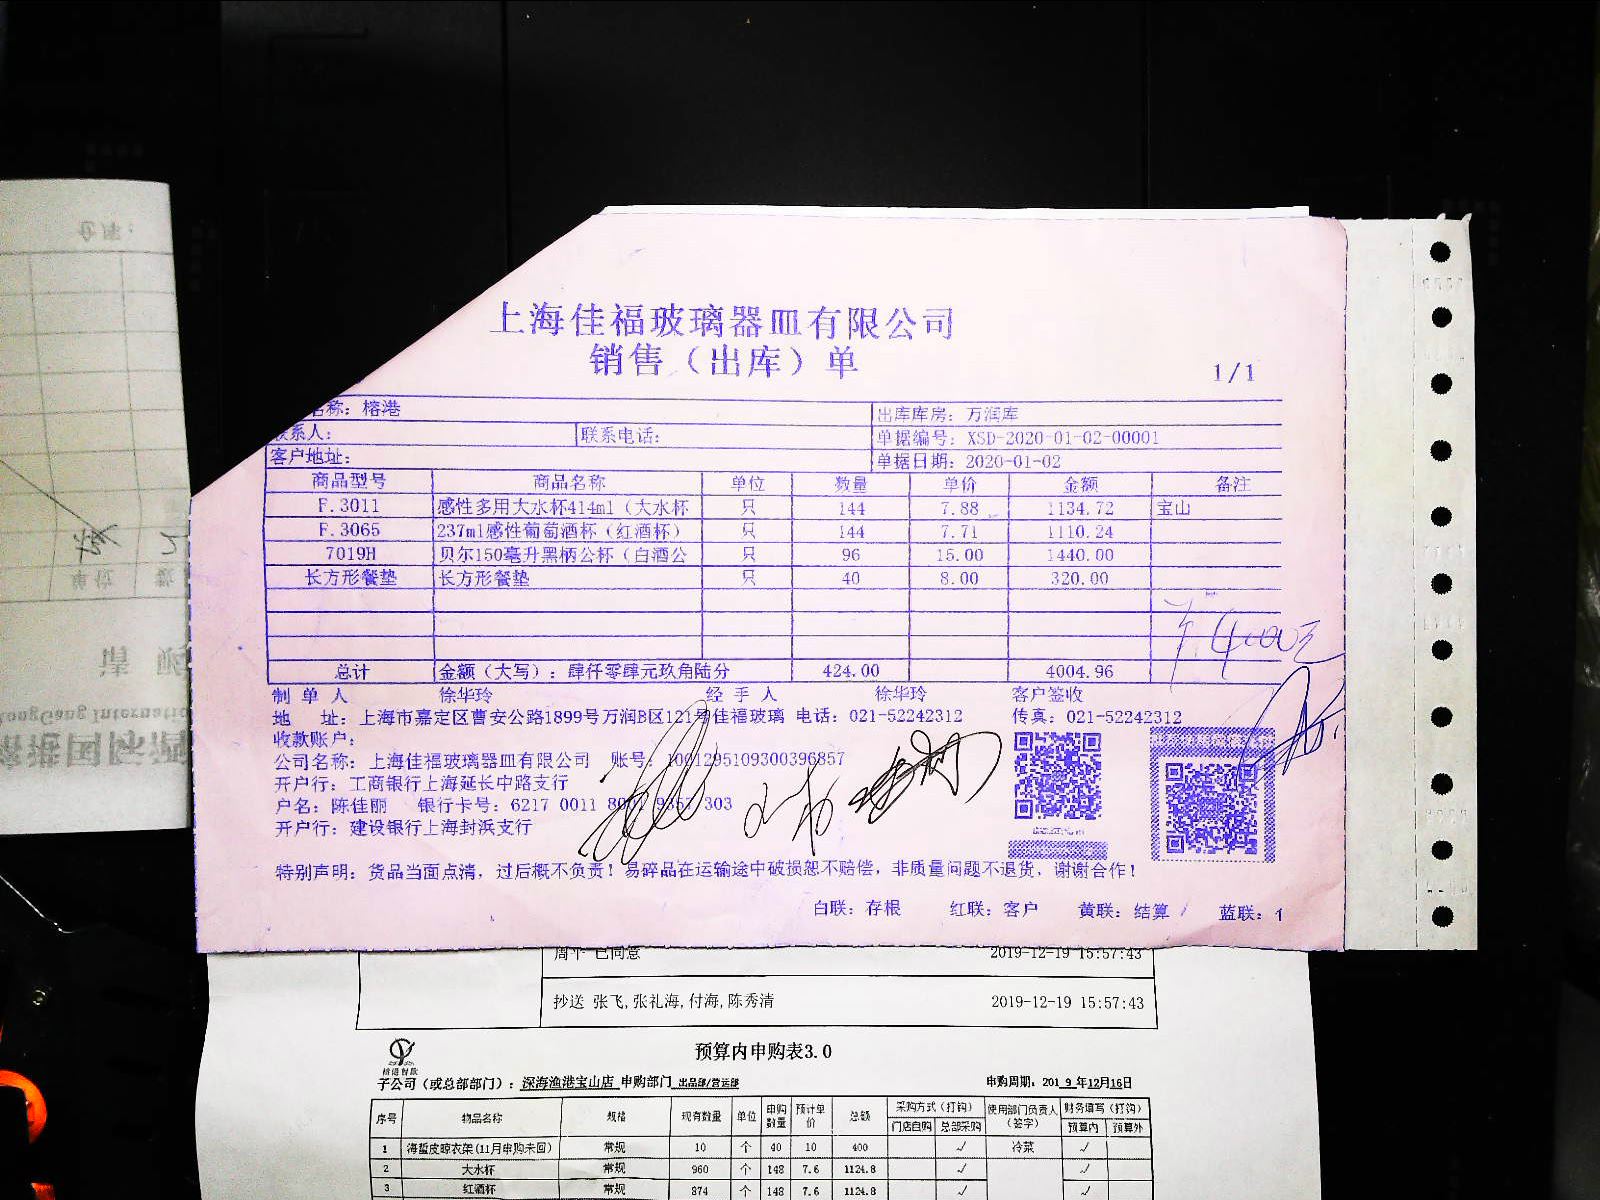 上海佳福玻璃器皿有限公司
销售（出库）单
1/1
名称：榕港 出库库房：万润库
联系人： 联系电话： 单据编号：XSD-2020-01-02-00001
客户地址： 单据日期：2020-01-02
商品型号 商品名称 单位 数量 单价 金额 备注
F.3011 感性多用大水杯414ml（大水杯 只 144 7.88 1134.72 宝山
F.3065 237ml感性葡萄酒杯（红酒杯） 只 144 7.71 1110.24
7019H 贝尔150毫升黑柄公杯（白酒公 只 96 15.00 1440.00
长方形餐垫 长方形餐垫 只 40 8.00 320.00
总计 金额（大写）：肆仟零肆元玖角陆分 424.00 4004.96
制单人 徐华玲 经手人 徐华玲 客户签收
地 址：上海市嘉定区曹安公路1899号万润B区121号佳福玻璃 电话：021-52242312 传真：021-52242312
收款账户：
公司名称：上海佳福玻璃器皿有限公司 账号：1001295109300396857
开户行：工商银行上海延长中路支行
户名：陈佳丽 银行卡号：6217 0011 303
开户行：建设银行上海封浜支行
特别声明：货品当面点清，过后概不负责！易碎品在运输途中破损恕不赔偿，非质量问题不退货，谢谢合作！
白联：存根 红联：客户 黄联：结算 蓝联：
周平 已同意 2019-12-19 15:57:43
抄送 张飞,张礼海,付海,陈秀清 2019-12-19 15:57:43
预算内申购表3.0
子公司（或总部部门）：深海渔港宝山店 申购部门 出品部/营运部 申购周期：2019年12月16日
序号 物品名称 规格 现有数量 单位 申购数量 预计单价 总额 采购方式（打钩） 使用部门负责人（签字） 财务填写（打沟）
门店自购 总部采购 预算内 预算外
1 海蜇皮晾衣架(11月申购未回) 常规 10 个 40 10 400 ✓ 冷菜 ✓
2 大水杯 常规 960 个 148 7.6 1124.8 ✓ ✓
3 红酒杯 常规 874 个 148 7.6 1124.8 ✓ ✓